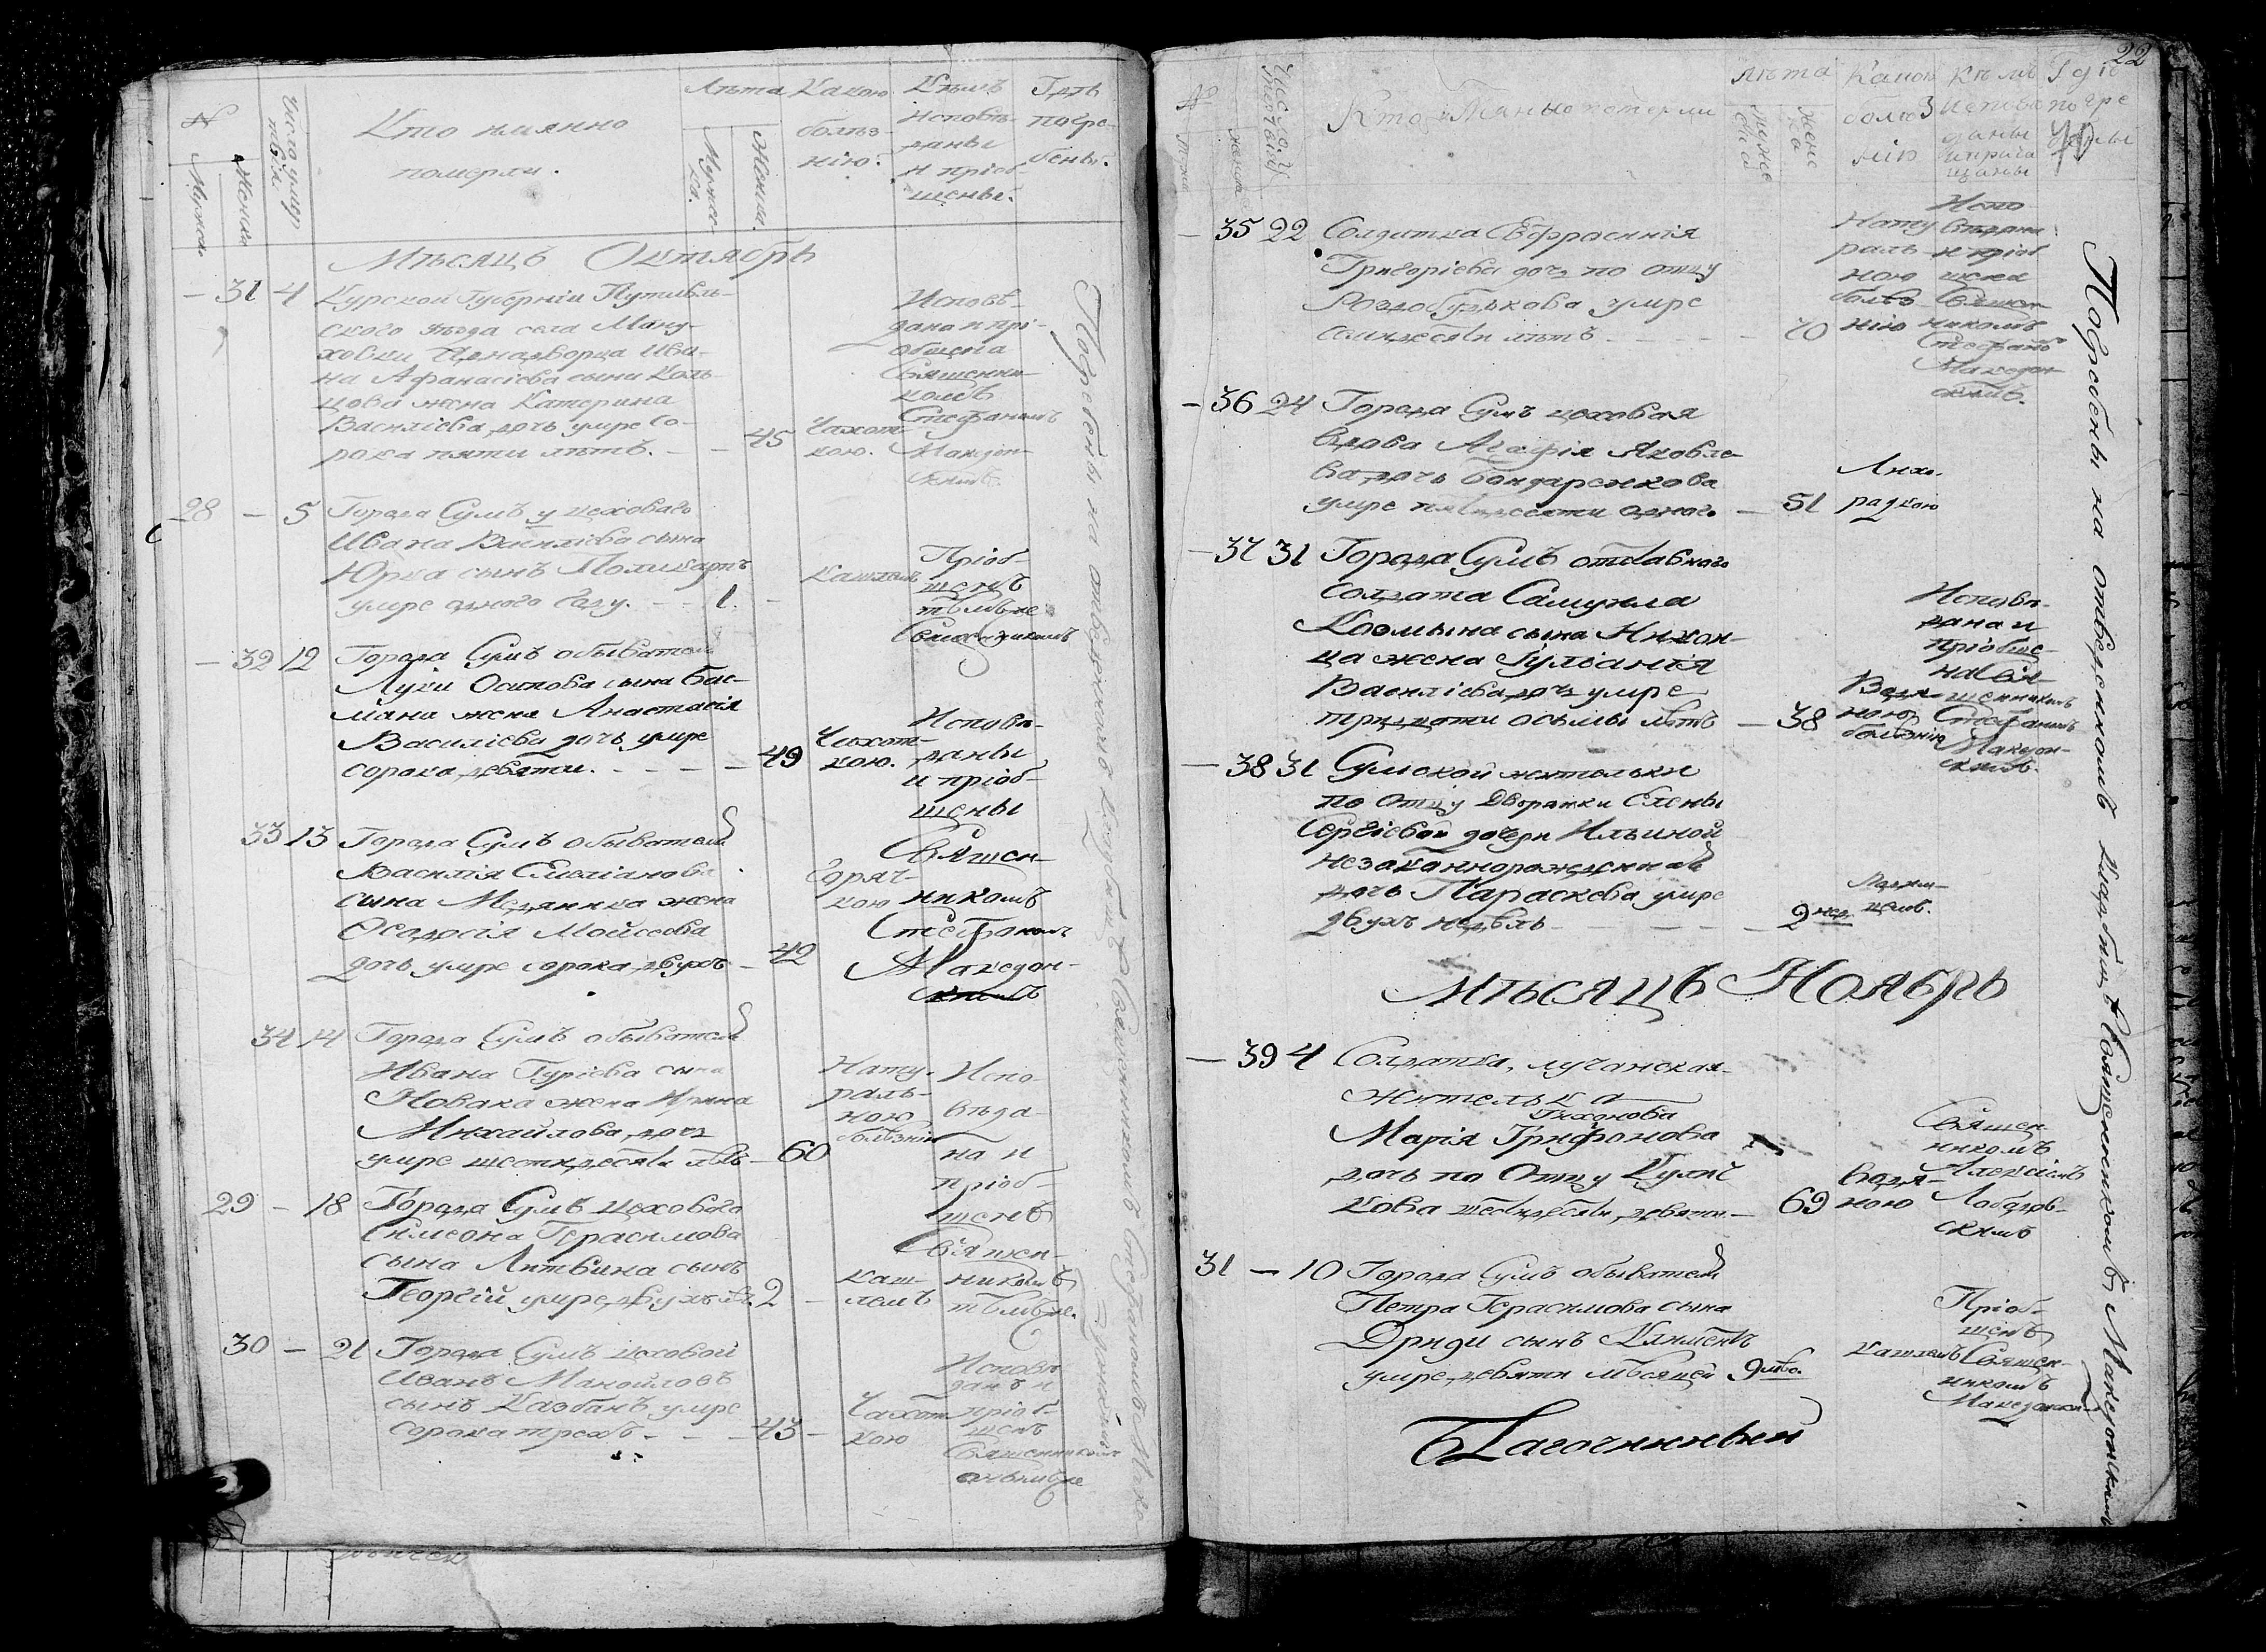 №
Мужска
Женска
Число умер
твій
Кто имянно
померли.
Лѣта
Мужес
ка.
Женск.
Какою
болѣз-
нію.
Кѣмъ
исповѣ-
даны
и пріоб-
щены.
Гдѣ
погре-
бены.
Мѣсяцъ Октябрь
— 31 4 Курской Губерніи Путивль-
ского уѣзда села
ховки Аднадворца Ива-
на Афанасіева сына Коль-
цова жена Катерина
Василіева дочь умре со-
рока пяти лѣтъ. — — 45
Чахот-
кою.
Исповѣ-
дана и прі-
общена
Священни-
комъ
Стефаномъ
Македон-
скимъ
28 — 5 Города Сумъ у цеховаго
Ивана Василіева сына
Юрка сынъ Поликарпъ
умре одного году. — — 1. —
кашлемъ
Пріоб-
щенъ
тѣмъ же
Священникомъ
— 32 12 Города Сумъ обывателя
Луки Осипова сына Бас-
мана жена Анастасія
Василіева дочь умре
сорока девяти. — — — 49
Чахот-
кою.
Исповѣ-
даны
и пріоб-
щены
Священ-
никомъ
Стефаномъ
Македон-
скимъ
33 13 Города Сумъ обывателя
Василія Емеліанова
сына Медяника жена
Феодосія Мойсеева
дочь умре сорока двухъ — 42
Горяч-
кою
34 14 Города Сумъ обывателя
Ивана Гуріева сына
Новака жена Ирина
Михайлова дочь
умре шестидесяти лѣтъ — 60
Нату-
раль-
ною
болѣзнію
Испо-
вѣда-
на и
пріоб-
щенъ
Священ-
никомъ
тѣмъ же.
29 — 18 Города Сумъ цеховаго
Симеона Герасимова
сына Литвина сынъ
Георгій умре двухъ лѣтъ 2 —
каш-
лемъ
30 — 21 Города Сумъ цеховой
Иванъ Манойловъ
сынъ Казбанъ умре
сорока трехъ. — — — 43 —
Чахот-
кою
Исповѣ
данъ и
пріоб-
щенъ
Священникомъ
онымъ же
Погребены на отведенномъ кладбищѣ Священникомъ Стефаномъ
22
№
Число у
мертвій
Кто имянно померли
лѣта
мужес
ка
женс
ка
Какою
болѣз
нію
Кѣмъ
исповѣ
даны
и пріоб
щаны
Гдѣ
погре
бены
— 35 22 Солдатка Евфросинія
Григоріева дочь по отцу
Роздобудькова умре
семидесяти лѣтъ — — — — 70
Нату
раль
ною
болѣз
нію
Испо
вѣдана
и пріоб
щена
Священ
никомъ
Стефаномъ
Македон
скимъ.
— 36 24 Города Сумъ цеховая
вдова Агафія Яковле
ва дочь Бондаренкова
умре пятидесяти одного — 51
Лихо-
радкою
— 37 31 Города Сумъ отставнаго
солдата Самуила
Космына сына Никон-
ца жена Іуліанія
Василіева дочь умре
тридцати осьмы лѣтъ — 38
Водя-
ною
болѣзнію
Исповѣ-
дана и
пріобще-
на Свя-
щенникомъ
Стефаномъ
Македон-
скимъ.
— 38 31 Сумской жительки
по Отцу Дворянки Елены
Сергіевой дочери Ильиной
незаконнорожденная
дочь Параскева умре
двухъ недѣль — — — — — 2 нед.
Родим-
цемъ.
Мѣсяцъ Ноябрь
— 39 4 Солдатка, лучанская
жителька
Тихонова
Марія Трифонова
дочь по Отцу Кулич
кова шестидесяти девяти — 69
водя-
ною
Священ
никомъ
Алексіемъ
Лобадов-
скимъ
31 — 10 Города Сумъ обывателя
Петра Герасимова сына
Дриди сынъ Климентъ
умре девяти мѣсяцей 9 мѣс.
кашлемъ
Пріоб-
щенъ
Священ-
никомъ
Македонски
Благочинный
Погребены на отведенномъ кладбищѣ Священникомъ Македонскимъ